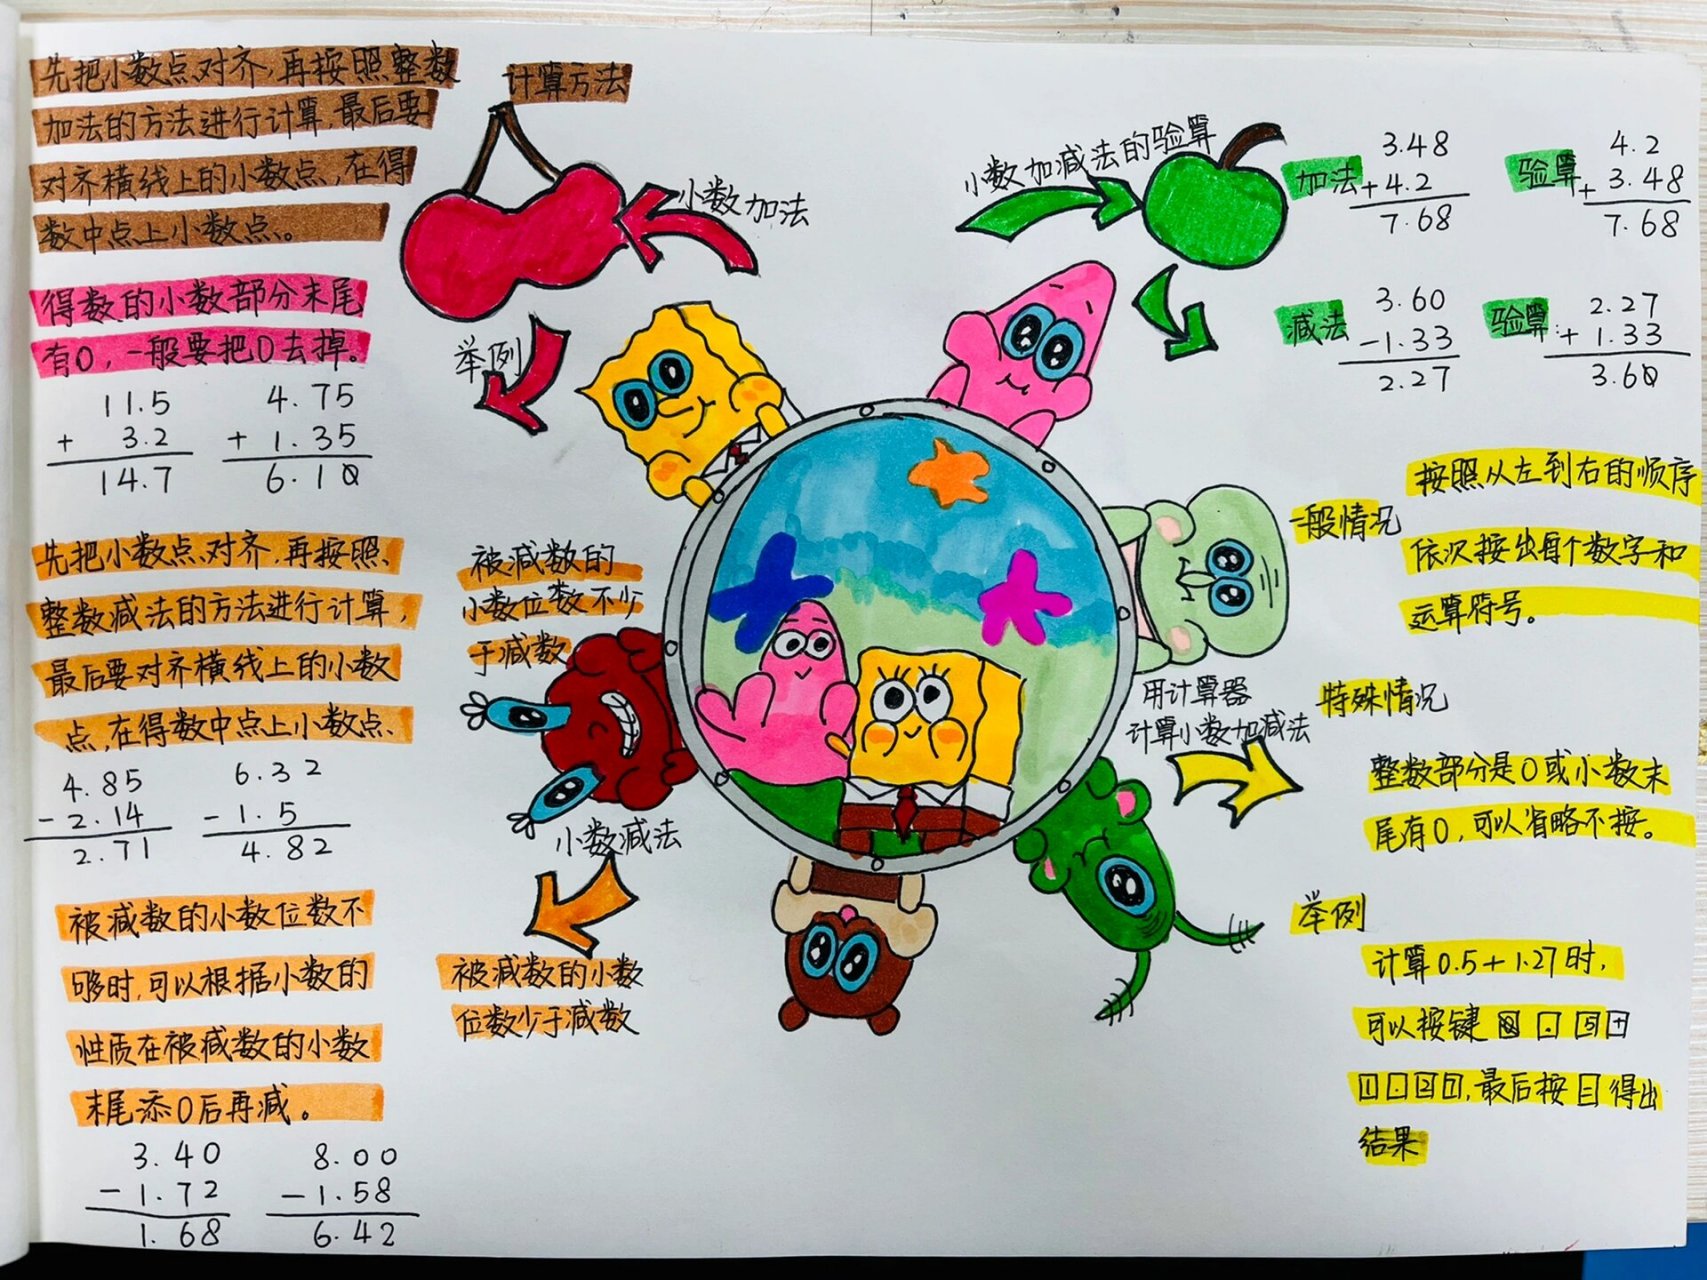 先把小数点对齐,再按照整数
加法的方法进行计算,最后要
对齐横线上的小数点,在得
数中点上小数点。
计算方法
小数加法
得数的小数部分末尾
有0,一般要把0去掉。
举例
11.5
+ 3.2
14.7
4.75
+ 1.35
6.10
先把小数点对齐,再按照
整数减法的方法进行计算,
最后要对齐横线上的小数
点,在得数中点上小数点
被减数的
小数位数不少
于减数
4.85
- 2.14
2.71
6.32
- 1.5
4.82
小数减法
被减数的小数位数不
够时,可以根据小数的
性质在被减数的小数
末尾添0后再减。
被减数的小数
位数少于减数
3.40
- 1.72
1.68
8.00
- 1.58
6.42
小数加减法的验算
加法
3.48
+ 4.2
7.68
验算
4.2
+ 3.48
7.68
减法
3.60
- 1.33
2.27
验算:
2.27
+ 1.33
3.60
用计算器
计算小数加减法
一般情况
按照从左到右的顺序
依次按出每个数字和
运算符号。
特殊情况
整数部分是0或小数末
尾有0,可以省略不按。
举例
计算0.5+1.27时,
可以按键 0 . 5 +
1 . 2 7,最后按 = 得出
结果